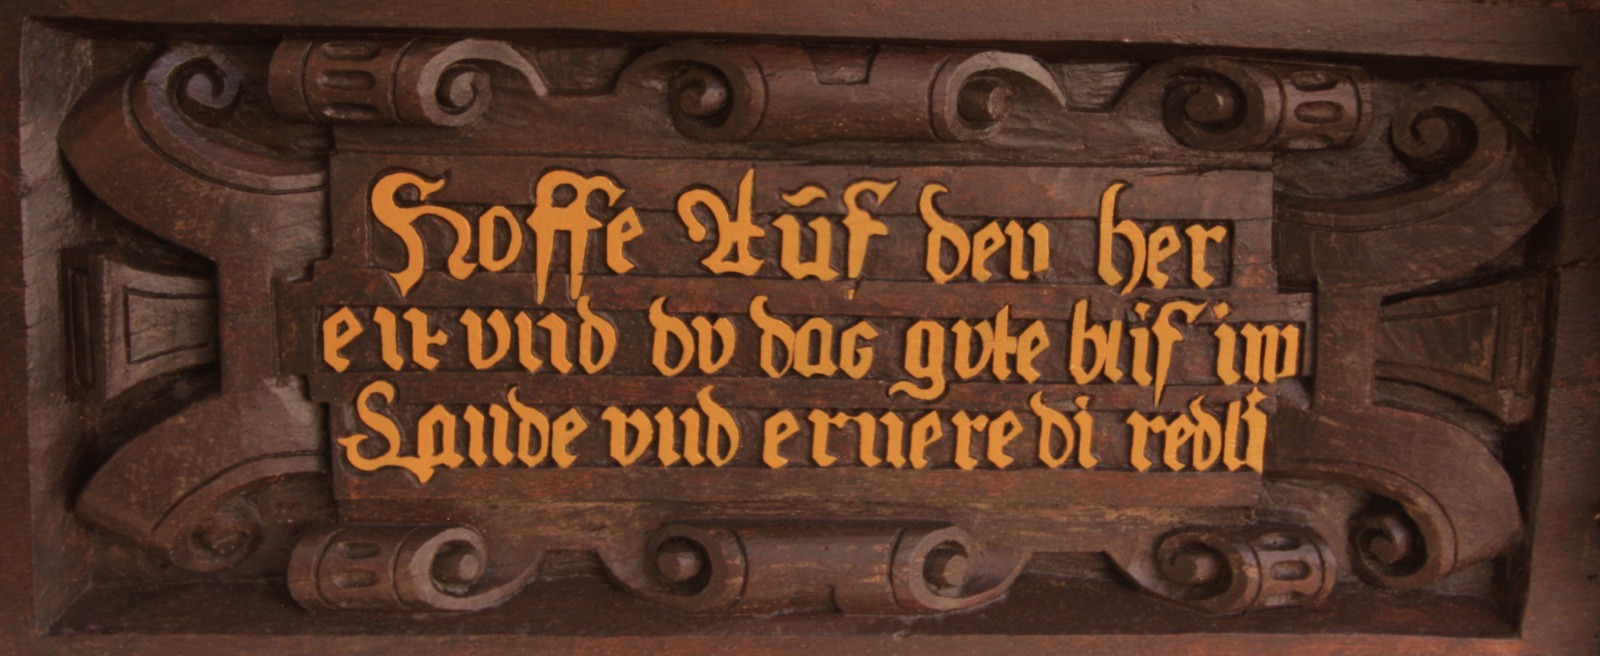 Hoffe Aūf den her
en vnd dv das gvte blif im
Lande vnd ernere di redli